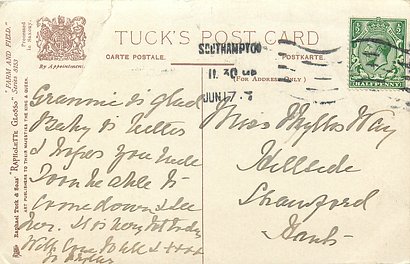 TUCK'S POST CARD
CARTE POSTALE.
POSTKARTE.
(FOR ADDRESS ONLY.)
By Appointment.
"FARM AND FIELD."
Raphael Tuck & Sons' "RAPHOLETTE GLOSSO"
ART PUBLISHERS TO THEIR MAJESTIES THE KING & QUEEN
SOUTHAMPTON
11.30
JUN 17
HALFPENNY
Grannie is glad
Baby is better
& hopes you will
soon be able to
come down & see
her. It is very hot today
With love to all xxxx
Miss Phyllis Way
Hillside
Shawford
Hants